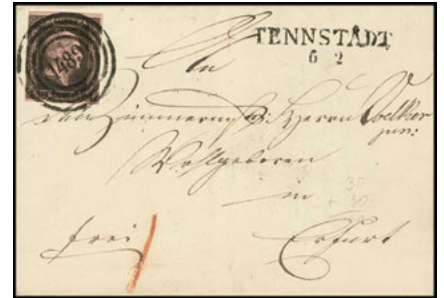 1489
TENNSTÄDT
6 2
An
den Zimmermstr: Herrn Voelker
jun:
Wohlgeboren
in
30
+ 30
frei
Erfurt